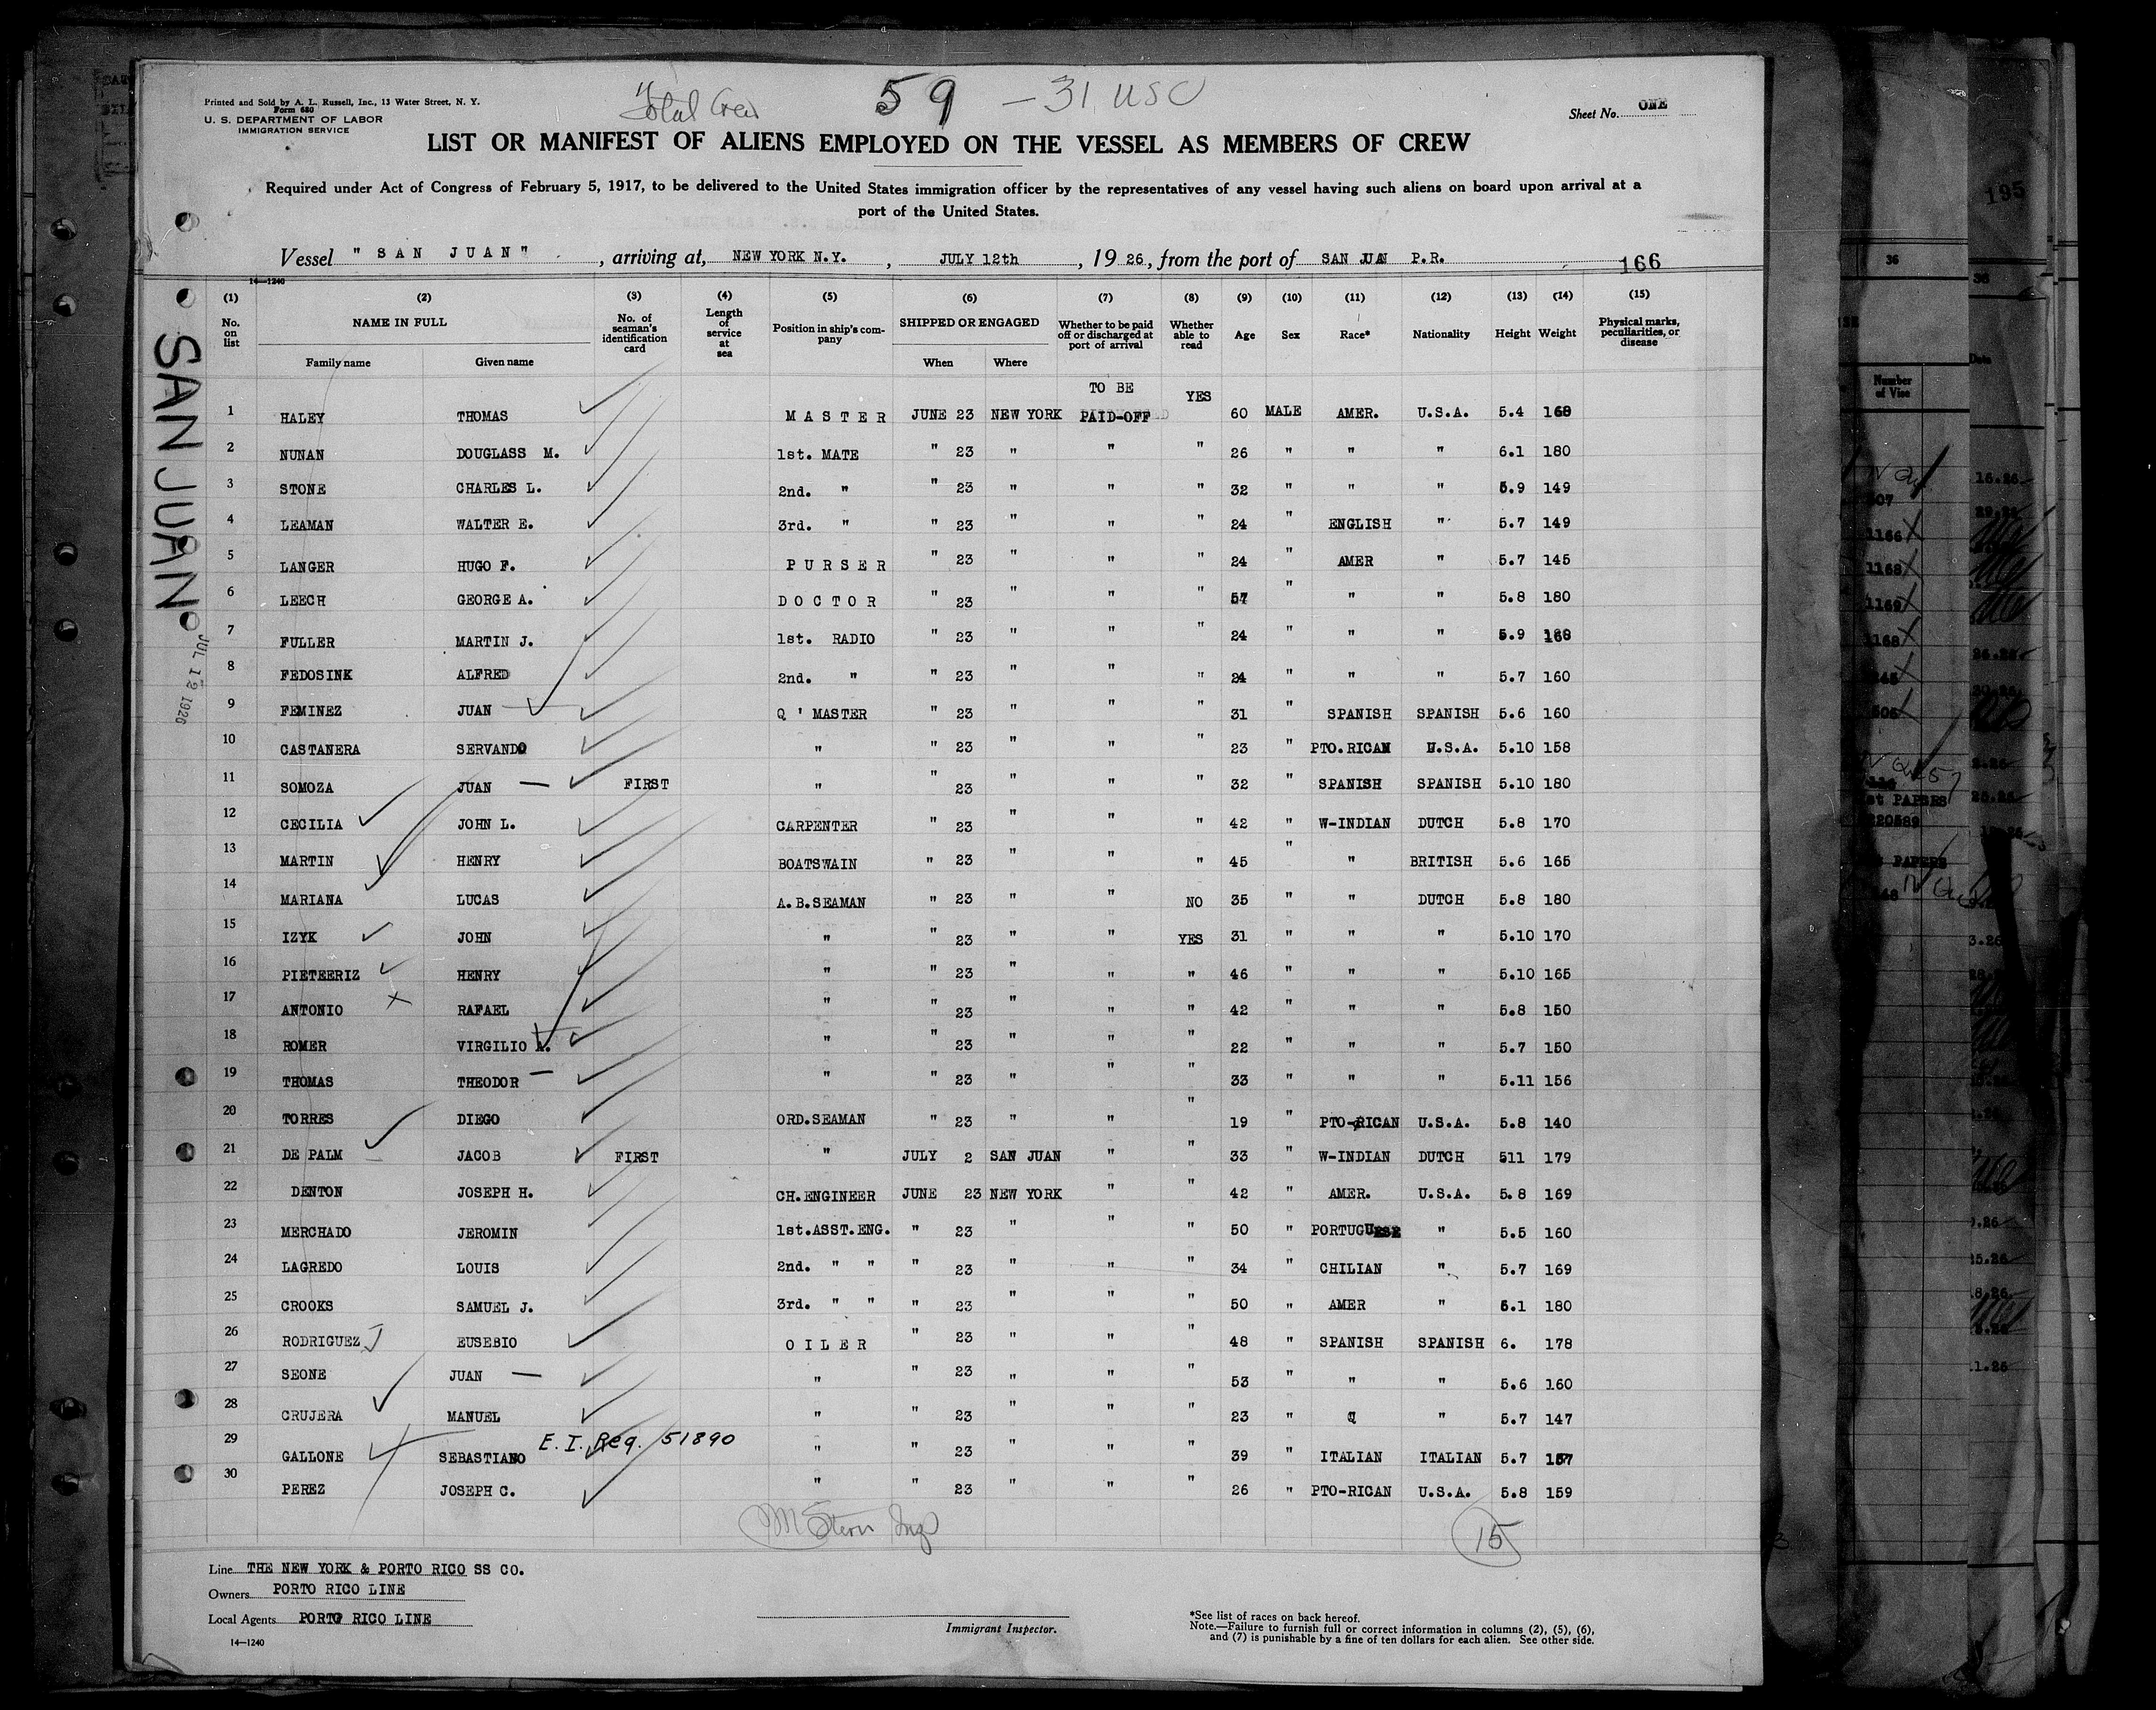 Total Crew 59 - 31 USC
Printed and Sold by A. L. Russell, Inc., 13 Water Street, N. Y.
Form 680
U. S. DEPARTMENT OF LABOR
IMMIGRATION SERVICE
Sheet No. ONE
LIST OR MANIFEST OF ALIENS EMPLOYED ON THE VESSEL AS MEMBERS OF CREW
Required under Act of Congress of February 5, 1917, to be delivered to the United States immigration officer by the representatives of any vessel having such aliens on board upon arrival at a
port of the United States.
Vessel "SAN JUAN", arriving at, NEW YORK N.Y., JULY 12th, 1926, from the port of SAN JUAN P.R. 166
14—1240
(1) (2) (3) (4) (5) (6) (7) (8) (9) (10) (11) (12) (13) (14) (15)
No. on list NAME IN FULL Family name Given name No. of seaman's identification card Length of service at sea Position in ship's company SHIPPED OR ENGAGED When Where Whether to be paid off or discharged at port of arrival Whether able to read Age Sex Race* Nationality Height Weight Physical marks, peculiarities, or disease
TO BE YES
1 HALEY THOMAS MASTER JUNE 23 NEW YORK PAID-OFF 60 MALE AMER. U.S.A. 5.4 160
2 NUNAN DOUGLASS M. 1st. MATE " 23 " " " 26 " " " 6.1 180
3 STONE CHARLES L. 2nd. " " 23 " " " 32 " " " 5.9 149
4 LEAMAN WALTER E. 3rd. " " 23 " " " 24 " ENGLISH " 5.7 149
5 LANGER HUGO F. PURSER " 23 " " " 24 " AMER " 5.7 145
6 LEECH GEORGE A. DOCTOR " 23 " " " 57 " " " 5.8 180
7 FULLER MARTIN J. 1st. RADIO " 23 " " " 24 " " " 5.9
8 FEDOSINK ALFRED 2nd. " " 23 " " " 24 " " " 5.7 160
9 FEMINEZ JUAN Q ' MASTER " 23 " " " 31 " SPANISH SPANISH 5.6 160
10 CASTANERA SERVANDO " " 23 " " " 23 " PTO.RICAN U.S.A. 5.10 158
11 SOMOZA JUAN — FIRST " " 23 " " " 32 " SPANISH SPANISH 5.10 180
12 CECILIA JOHN L. CARPENTER " 23 " " " 42 " W-INDIAN DUTCH 5.8 170
13 MARTIN HENRY BOATSWAIN " 23 " " " 45 " " BRITISH 5.6 165
14 MARIANA LUCAS A.B.SEAMAN " 23 " " NO 35 " " DUTCH 5.8 180
15 IZYK JOHN " " 23 " " YES 31 " " " 5.10 170
16 PIETEERIZ HENRY " " 23 " " " 46 " " " 5.10 165
17 ANTONIO RAFAEL " " 23 " " " 42 " " " 5.8 150
18 ROMER VIRGILIO A. " " 23 " " " 22 " " " 5.7 150
19 THOMAS THEODOR — " " 23 " " " 33 " " " 5.11 156
20 TORRES DIEGO ORD.SEAMAN " 23 " " " 19 " PTO-RICAN U.S.A. 5.8 140
21 DE PALM JACOB FIRST " JULY 2 SAN JUAN " " 33 " W-INDIAN DUTCH 511 179
22 DENTON JOSEPH H. CH.ENGINEER JUNE 23 NEW YORK " " 42 " AMER. U.S.A. 5.8 169
23 MERCHADO JEROMIN 1st.ASST.ENG. " 23 " " " 50 " PORTUGUESE " 5.5 160
24 LAGREDO LOUIS 2nd. " " " 23 " " " 34 " CHILIAN " 5.7 169
25 CROOKS SAMUEL J. 3rd. " " " 23 " " " 50 " AMER " 6.1 180
26 RODRIGUEZ EUSEBIO OILER " 23 " " " 48 " SPANISH SPANISH 6. 178
27 SEONE JUAN — " " 23 " " " 53 " " " 5.6 160
28 CRUJERA MANUEL " " 23 " " " 23 " " 5.7 147
29 GALLONE SEBASTIANO E. I. Reg. 51890 " " 23 " " " 39 " ITALIAN ITALIAN 5.7 157
30 PEREZ JOSEPH C. " " 23 " " " 26 " PTO-RICAN U.S.A. 5.8 159
M Stern Insp
15
Line THE NEW YORK & PORTO RICO SS CO.
Owners PORTO RICO LINE
Local Agents PORTO RICO LINE
14—1240
Immigrant Inspector.
*See list of races on back hereof.
Note.—Failure to furnish full or correct information in columns (2), (5), (6),
and (7) is punishable by a fine of ten dollars for each alien. See other side.
SAN JUAN
JUL 12 1926
195
36
Number of Visa
Date